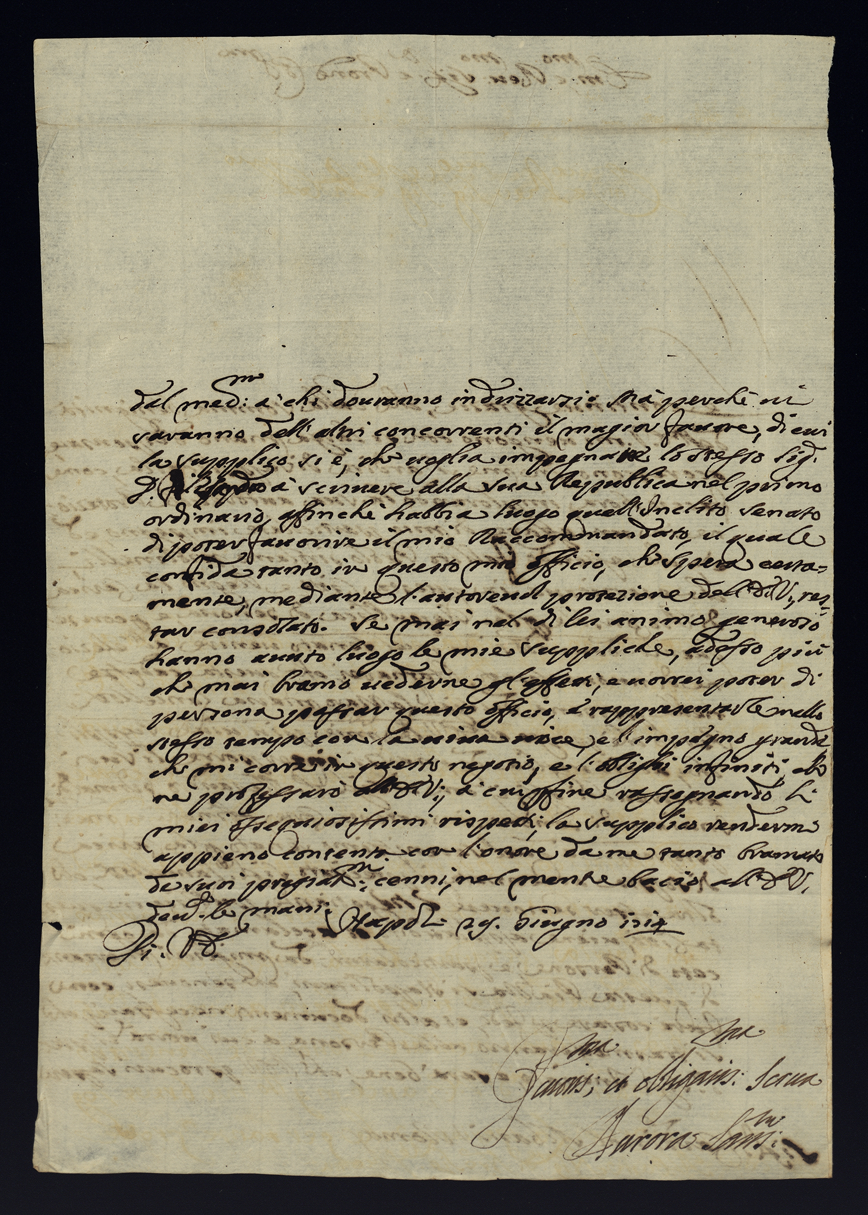 dal med:mo a' chi douranno indrizzarzi. Mà perche ui
saranno dell'altri concorrenti il magior fauore, di cui
la supplico si è, che uoglia impegnare lo stesso Sig:
D. à scriuere alla sua Republica nel primo
ordinario, affinche habbia luogo quell'Inclito Senato
di poter fauorire il mio Raccomandato, il quale
confida tanto in questo mio officio, che spera certa=
mente, mediante l'autoreuol protezione dell'E.V., res=
tar consolato. Se mai nel di lei animo generoso
hanno auuto luogo le mie suppliche, adesso più
che mai bramo uederne gl'effetti, e uorrei poter di
persona passar questo officio, e rappresentarle nello
stesso tempo con la uiua uoce, e l'impegno grande
che mi corre in questo negotio, e l'oblighi infiniti, che
ne professarò all'E.V., à cui per fine rassegnando li
miei ossequiosissimi rispetti, la supplico rendermi
appieno contenta con l'onore da me tanto bramato
de suoi pregiatmi cenni, nel mentre bacio all'E.V.
deuote le mani. Napoli 29. Giugno 1714
Di V.E.
Diuotis:ma, et obligatis:ma Serua
Aurora Sans:no